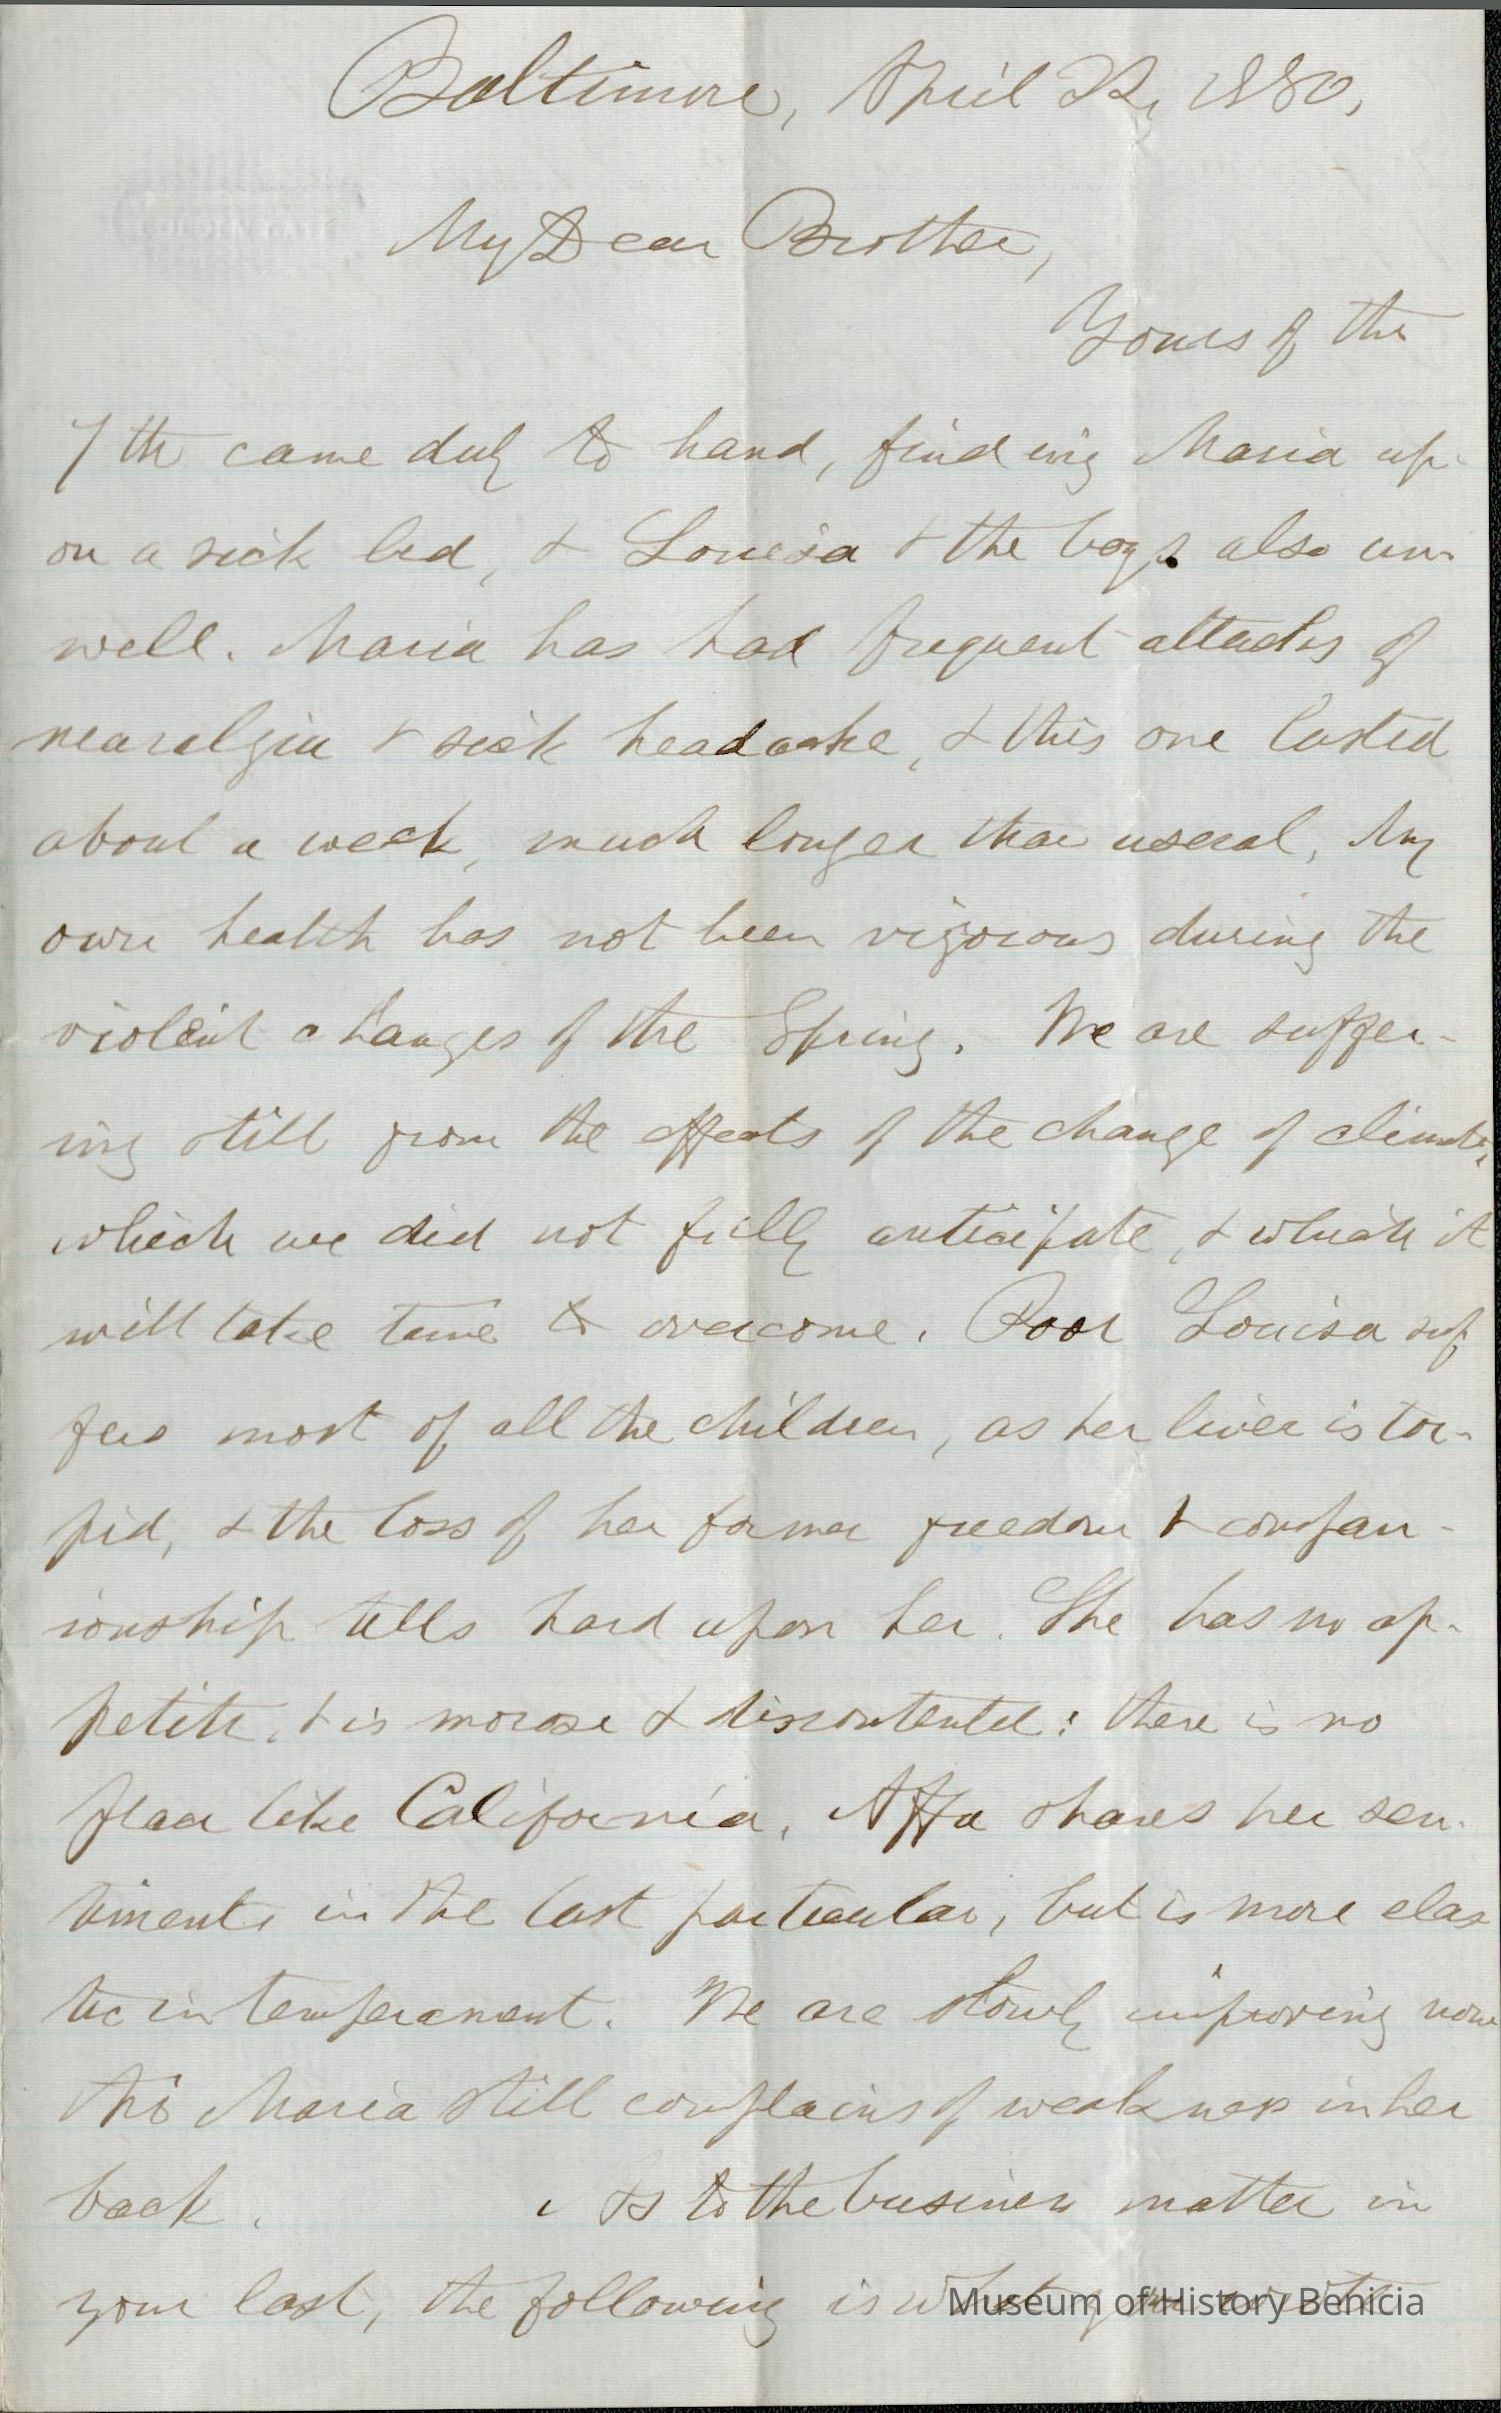 Baltimore, April 22, 1880,
My Dear Brother,
Yours of the
7th came duly to hand, finding Maria up-
on a sick bed, & Louisa & the boys also un-
well. Maria has had frequent attacks of
nearalgia & sick headache, & this one lasted
about a week, much longer than useral, My
own health has not been vigorous during the
violent changes of the Spring. We are suffer-
ing still from the effects of the change of climate,
which we did not fully anticipate, & which it
will take time to overcome. Poor Louisa suf
fers most of all the children, as her liver is tor-
pid, & the loss of her former freedom & compan-
ionship tells hard upon her. She has no ap-
petite, & is morose & discontented: there is no
place like California. Affa shares her sen-
timents in the last particular, but is more elas
tic in temperament. We are slowly improving now
tho Maria still complains of weakness in her
back. As to the business matter in
your last, the following is
Museum of History Benicia